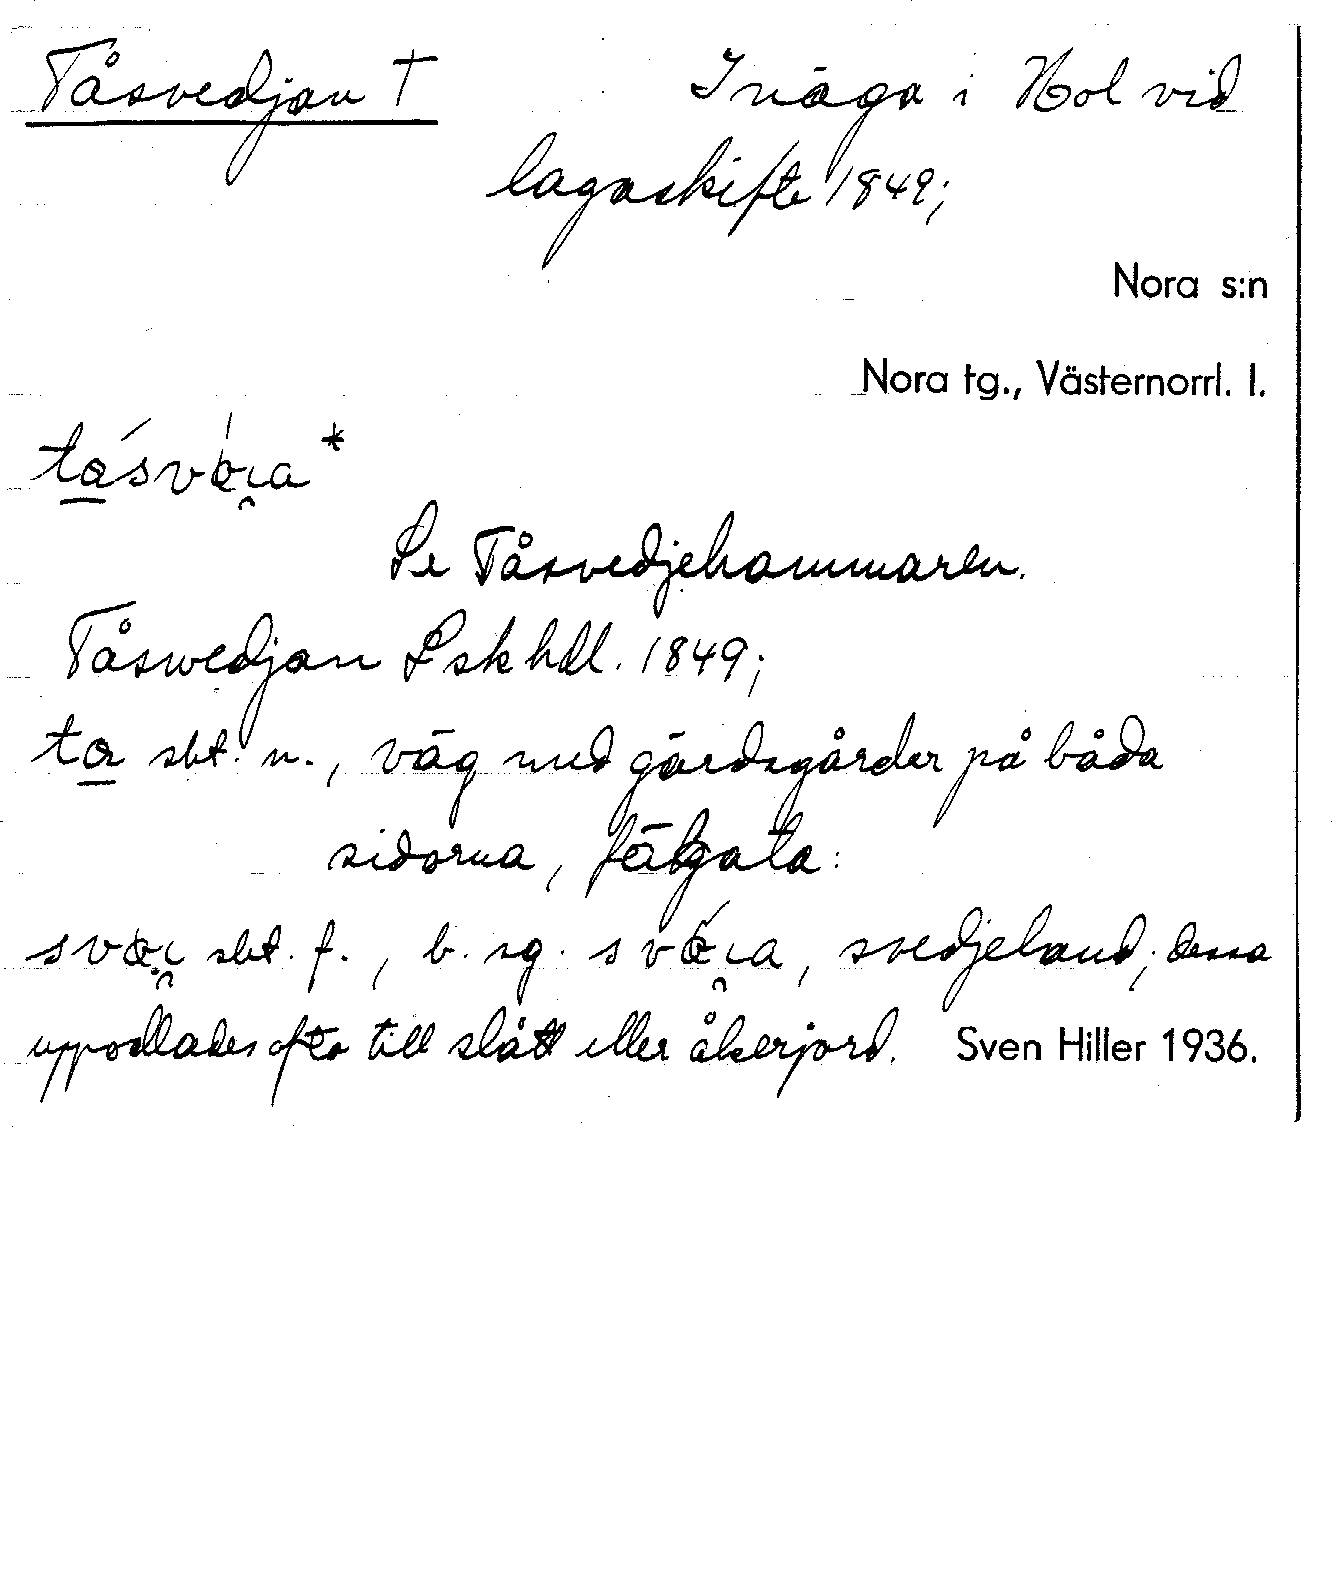 Tåsvedjan † Inäga i Hol vid
lagaskifte 1849;
Nora s:n
Nora tg., Västernorrl. l.
Se Tåsvedjehammaren.
Tåswedjan Lskhdl. 1849;
ta sbt. n., väg med gärdsgårder på båda
sidorna, fägata:
sbt. f., b. sg. svedjeland; dessa
uppodlades ofta till slått eller åkerjord. Sven Hiller 1936.